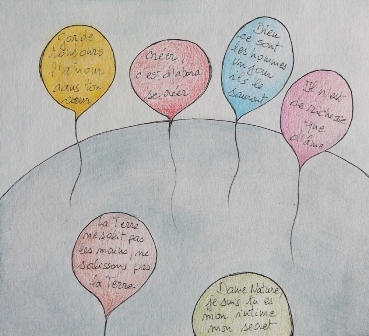 Garde
toujours
l'amour
dans ton
cœur
Créer,
c'est d'abord
se créer
Dieu
ce sont
les hommes
un jour
ils le
sauront
Il n'est
de richesse
que
d'âme
La Terre
ne salit pas
les mains, ne
salissons pas
la Terre
Dame Nature,
je suis tu es
mon intime
mon secret